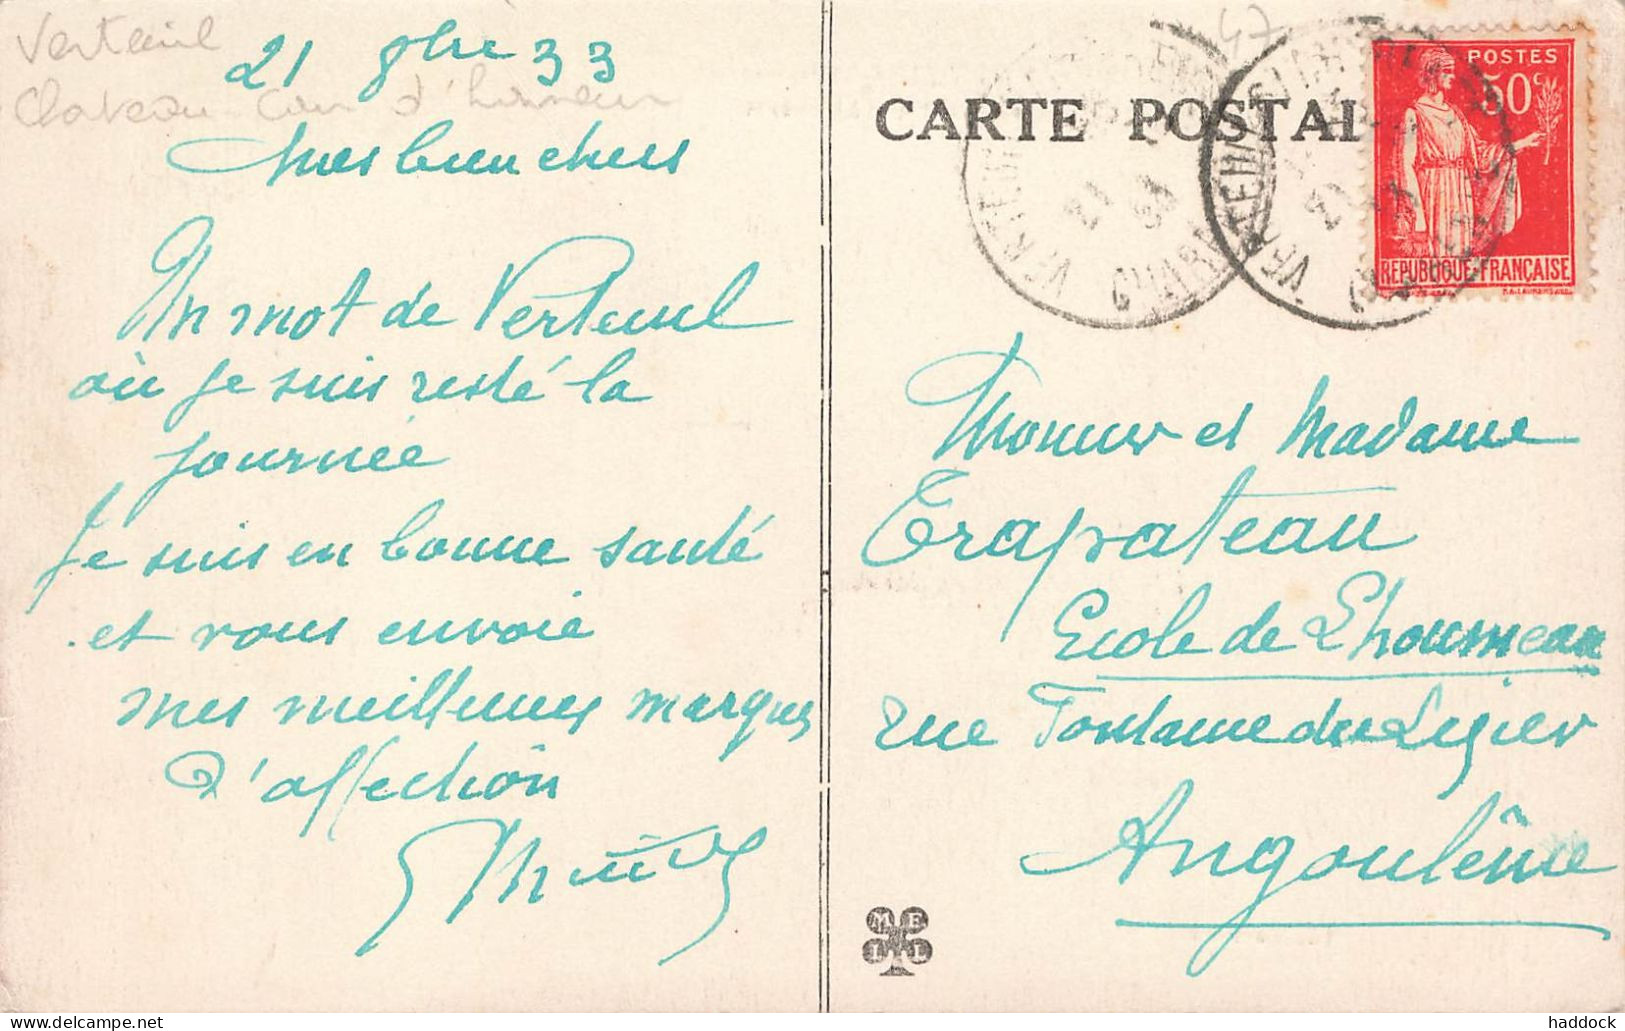 Verteuil
Chateau cour d'honneur
47
21 8bre 33
Mes bien chers
Un mot de Verteuil
où je suis resté la
journée
Je suis en bonne santé
et vous envoie
mes meilleures marques
d'affection
CARTE POSTAL
POSTES
50c
REPUBLIQUE FRANÇAISE
CHARENTE
Monsieur et Madame
Trapateau
Ecole de Lhoumeau
rue Fontaine du Lizier
Angoulême
MELL
delcampe.net
haddock